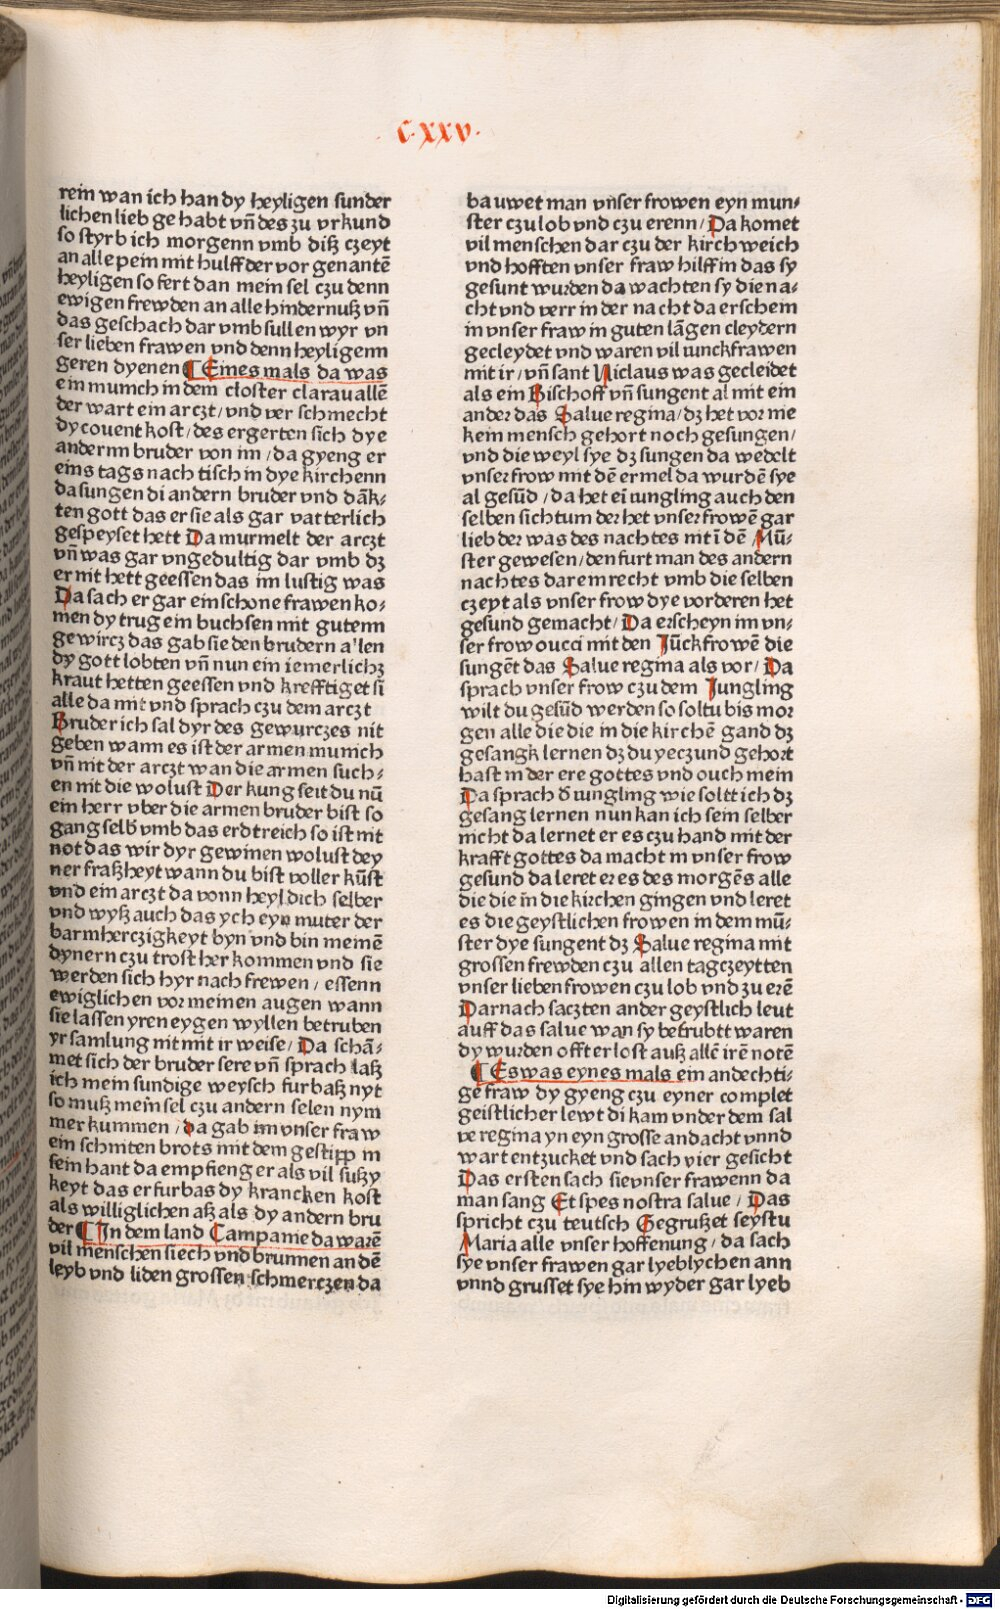 C·xxv·
rein wan ich han dy heyligen sunder
lichen lieb ge habt vn̄ des zu vrkund
so styrb ich morgenn vmb diſz czeyt
an alle pein mit hulff der vor genantē
heyligen so fert dan mein sel czu denn
ewigen frewden an alle hindernuſz vn̄
das geschach dar vmb sullen wyr vn
ser lieben frawen vnd denn heyligenn
geren dyenen ¶ Eines mals da was
ein munich in dem closter clarauallē
der wart ein arczt / vnd ver schmecht
dy couent kost / des ergerten sich dye
andernn bruder von im / da gyeng er
eins tags nach tisch in dye kirchenn
da sungen di andern bruder vnd dāk⸗
ten gott das er sie als gar vatterlich
gespeyset hett Da murmelt der arczt
vn̄ was gar vngedultig dar vmb dz
er nit hett geessen das im lustig was
Da sach er gar ein schone frawen ko⸗
men dy trug ein buchsen mit gutem
gewircz das gab sie den brudern allen
dy gott lobten vn̄ nun ein iemerlichz
kraut hetten geessen vnd krefftiget si
alle da mit vnd sprach czu dem arczt
Bruder ich sal dyr des gewurczes nit
geben wann es ist der armen munich
vn̄ nit der arczt wan die armen such⸗
en nit die wolust Der kung seit du nū
ein herr vber die armen bruder bist so
gang selb vmb das erdtreich so ist nit
not das wir dyr gewinen wolust dey
ner fraſzheyt wann du bist voller kūst
vnd ein arczt da vonn heyl dich selber
vnd wyſz auch das ych eyn muter der
barmherczigkeyt byn vnd bin meinē
dynern czu trost her kommen vnd sie
werden sich hyr nach frewen / essenn
ewiglichen vor meinen augen wann
sie lassen yren eygen wyllen betruben
yr samlung nit mit ir weise / Da schā⸗
met sich der bruder sere vn̄ sprach laſz
ich mein sundige weysch furbaſz nyt
so muſz mein sel czu andern selen nym
mer kummen / da gab im vnser fraw
ein schniten brots mit dem gestipp in
sein hant da empfieng er als vil suſzy
keyt das er furbas dy krancken kost
als williglichen aſz als dy andern bru
der ¶ In dem land Campanie da warē
vil menschen siech vnd brunnen an dē
leyb vnd liden grossen schmerczen da
bauwet man vnser frowen eyn mun⸗
ster czu lob vnd czu erenn / Da komet
vil menschen dar czu der kirchweich
vnd hofften vnser fraw hilff in das sy
gesunt wurden da wachten sy die na⸗
cht vnd verr in der nacht da erschein
in vnser fraw in guten lāgen cleydern
gecleydet vnd waren vil iunckfrawen
mit ir / vn̄ sant Niclaus was gecleidet
als ein Bischoff vn̄ sungent al mit ein
ander das Salue regina / dz het vor nie
kein mensch gehort noch gesungen /
vnd die weyl sye dz sungen da wedelt
vnser frow mit dē ermel da wurdē sye
al gesūd / da het ei iungling auch den
selben sichtum der het vnser frowē gar
lieb der was des nachtes nit ī dē Mū⸗
ster gewesen / den furt man des andern
nachtes dar ein recht vmb die selben
czeyt als vnser frow dye vorderen het
gesund gemacht / Da erscheyn im vn⸗
ser frow oucci mit den Jūckfrowē die
sungēt das Salue regina als vor / Da
sprach vnser frow czu dem Jungling
wilt du gesūd werden so soltu bis mor
gen alle die die in die kirchē gand dz
gesangk lernen dz du yeczund gehort
hast in der ere gottes vnd ouch mein
Da sprach d̄ iungling wie soltt ich dz
gesang lernen nun kan ich sein selber
nicht da lernet er es czu hand mit der
krafft gottes da macht in vnser frow
gesund da leret er es des morgēs alle
die die in die kirchen gingen vnd leret
es die geystlichen frowen in dem mū⸗
ster dye sungent dz Salue regina mit
grossen frewden czu allen tagczeytten
vnser lieben frowen czu lob vnd zu erē
Darnach saczten ander geystlich leut
auff das salue wan sy betrubtt waren
dy wurden offt erlost auſz allē irē notē
¶ Es was eynes mals ein andechti⸗
ge fraw dy gyeng czu eyner complet
geistlicher lewt di kam vnder dem sal
ve regina yn eyn grosse andacht vnnd
wart entzucket vnd sach vier gesicht
Das ersten sach sie vnser frawenn da
man sang Et spes nostra salue / Das
spricht czu teutsch Gegruſzet seystu
Maria alle vnser hoffenung / da sach
sye vnser frawen gar lyeblychen ann
vnnd grusset sye hin wyder gar lyeb
Digitalisierung gefördert durch die Deutsche Forschungsgemeinschaft - DFG